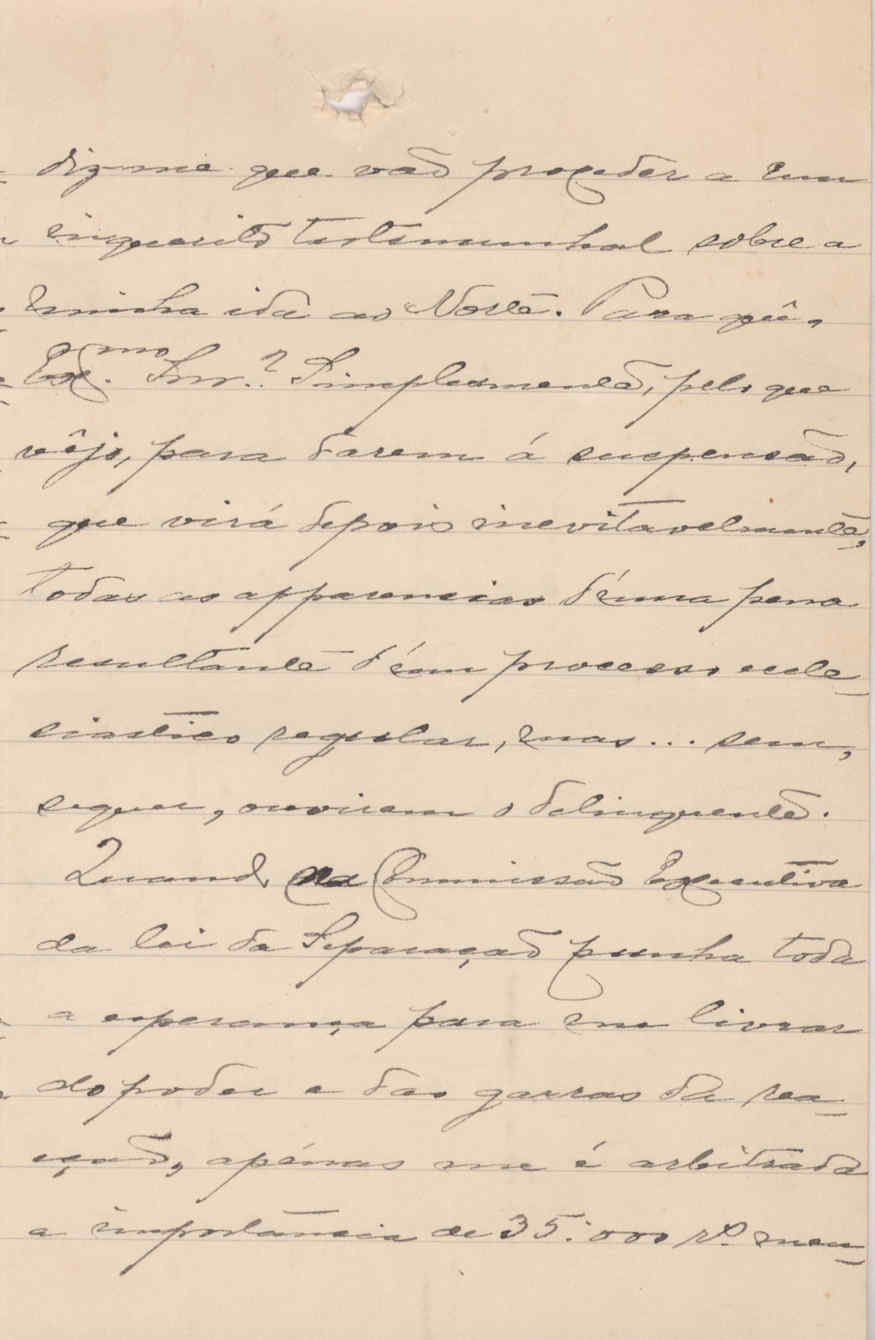 diz-me que vão proceder a um
inquerito testemunhal sobre a
minha ida ao Norte. Para quê,
Ex.mo Snr.? Simplesmente, pelo que
vêjo, para darem á suspensão,
que virá depois inevitavelmente,
todas as apparencias d'uma pena
resultante d'um processo ecle-
siastico regular, mas... sem,
sequer, ouvirem o delinquente.
Quando na Commissão Executiva
da lei da Separação punha toda
a esperança para me livrar
do poder e das garras da rea-
cção, apénas me é arbitrada
a importância de 35:000 rs. men-